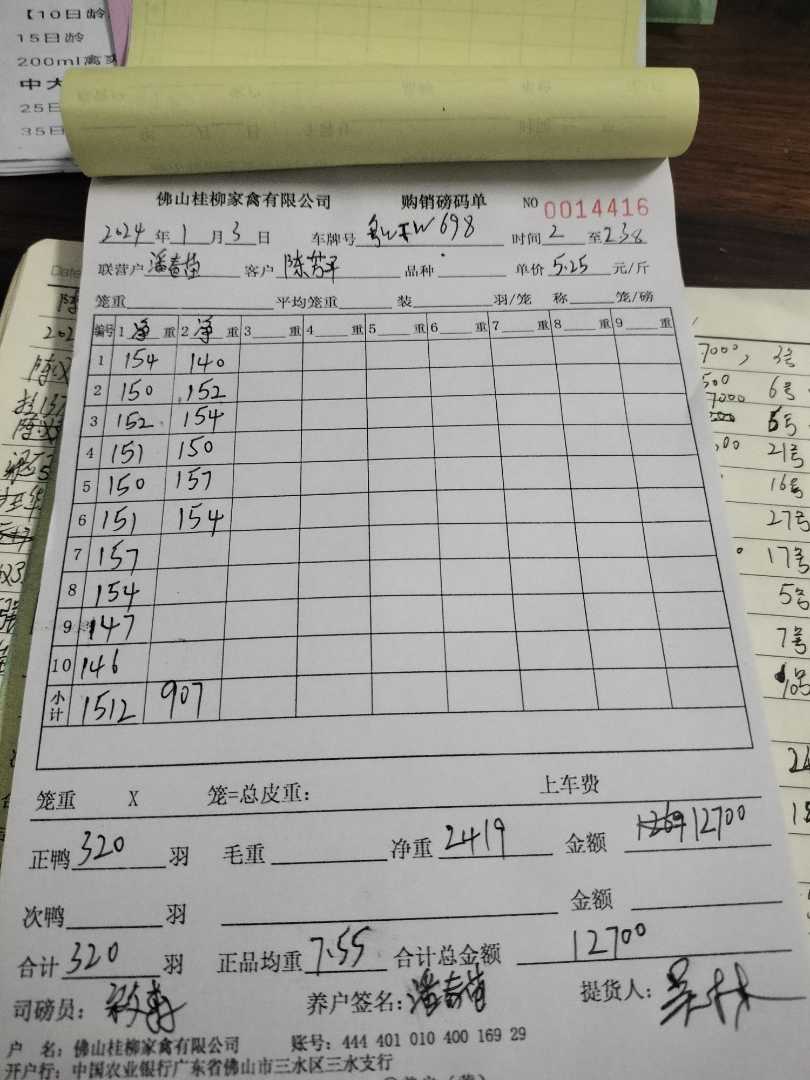 【10日龄
15日龄
200ml离
中大
25日
35日
佛山桂柳家禽有限公司 购销磅码单 NO 0014416
2024年1月3日 车牌号 698 时间2至238
联营户潘春苗 客户陈芳平 品种 单价5.25元/斤
笼重 平均笼重 装 羽/笼 称 笼/磅
编号 1净重 2净重 3 重 4 重 5 重 6 重 7 重 8 重 9 重
1 154 140
2 150 152
3 152 154
4 151 150
5 150 157
6 151 154
7 157
8 154
9 147
10 146
小计 1512 907
笼重 X 笼=总皮重: 上车费
正鸭320羽 毛重 净重2419 金额 12700
次鸭 羽 金额
合计320羽 正品均重7.55 合计总金额 12700
司磅员: 养户签名:潘春苗 提货人:
户 名: 佛山桂柳家禽有限公司 账号: 444 401 010 400 169 29
开户行: 中国农业银行广东省佛山市三水区三水支行
7000, 3号
500 6号
7000 5号
21号
16号
27号
17号
5号
7号
10号